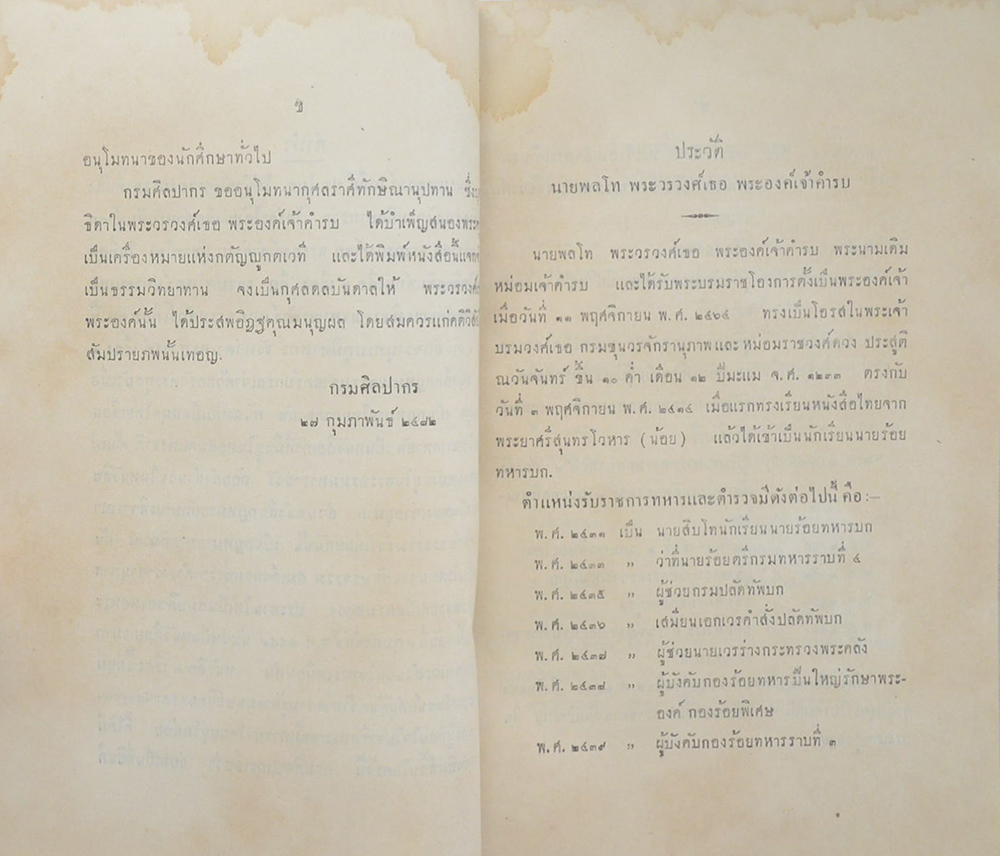 ข
อนุโมทนาของนักศึกษาทั่วไป
กรมศิลปากร ขออนุโมทนากุศลราศีทักษิณานุปทาน ซึ่ง
ธิดาในพระวรวงศ์เธอ พระองค์เจ้าคำรบ ได้บำเพ็ญสนองพระ
เป็นเครื่องหมายแห่งกตัญญูกตเวที และได้พิมพ์หนังสือนี้แจก
เป็นธรรมวิทยาทาน จงเป็นกุศลดลบันดาลให้ พระวรวงศ์
พระองค์นั้น ได้ประสพอิฏฐคุณมนุญผล โดยสมควรแก่คติวิสัย
สัมปรายภพนั้นเทอญ.
กรมศิลปากร
๒๗ กุมภาพันธ์ ๒๔๘๒
ประวัติ
นายพลโท พระวรวงศ์เธอ พระองค์เจ้าคำรบ
นายพลโท พระวรวงศ์เธอ พระองค์เจ้าคำรบ พระนามเดิม
หม่อมเจ้าคำรบ และได้รับพระบรมราชโองการตั้งเป็นพระองค์เจ้า
เมื่อวันที่ ๑๑ พฤศจิกายน พ.ศ. ๒๔๖๔ ทรงเป็นโอรสในพระเจ้า
บรมวงศ์เธอ กรมขุนวรจักรานุภาพ และ หม่อมราชวงศ์ดวง ประสูติ
ณวันจันทร์ ขึ้น ๑๐ ค่ำ เดือน ๑๒ ปีมะแม จ.ศ. ๑๒๓๓ ตรงกับ
วันที่ ๓ พฤศจิกายน พ.ศ. ๒๔๑๔ เมื่อแรกทรงเรียนหนังสือไทยจาก
พระยาศรีสุนทรโวหาร (น้อย) แล้วได้เข้าเป็นนักเรียนนายร้อย
ทหารบก.
ตำแหน่งรับราชการทหารและตำรวจมีดังต่อไปนี้ คือ:—
พ.ศ. ๒๔๓๑ เป็น นายสิบโทนักเรียนนายร้อยทหารบก
พ.ศ. ๒๔๓๓ ,, ว่าที่นายร้อยตรีกรมทหารราบที่ ๔
พ.ศ. ๒๔๓๕ ,, ผู้ช่วยกรมปลัดทัพบก
พ.ศ. ๒๔๓๖ ,, เสมียนเอกเวรคำสั่งปลัดทัพบก
พ.ศ. ๒๔๓๗ ,, ผู้ช่วยนายเวรร่างกระทรวงพระคลัง
พ.ศ. ๒๔๓๘ ,, ผู้บังคับกองร้อยทหารปืนใหญ่รักษาพระ-
องค์ กองร้อยพิเศษ
พ.ศ. ๒๔๓๙ ,, ผู้บังคับกองร้อยทหารราบที่ ๓